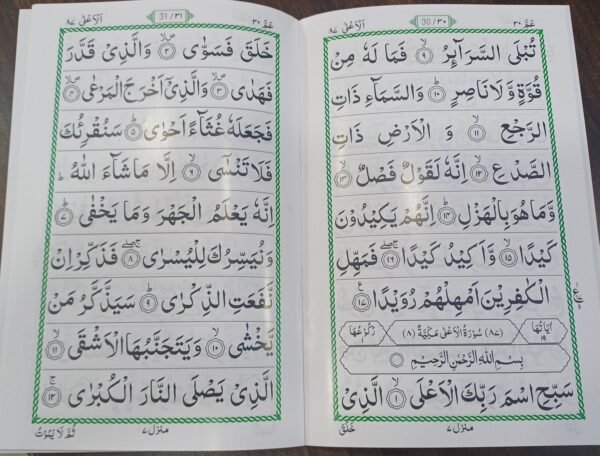 عَمَّ ٣٠
30/٣٠
اَلْاَعْلٰى ٨٧
تُبْلَى السَّرَآئِرُ ۙ‏﴿۹﴾ فَمَا لَهٗ مِنْ
قُوَّةٍ وَّلَا نَاصِرٍ ؕ‏﴿۱۰﴾ وَالسَّمَآءِ ذَاتِ
الرَّجْعِ ۙ‏﴿۱۱﴾ وَ الْاَرْضِ ذَاتِ
الصَّدْعِ ۙ‏﴿۱۲﴾ اِنَّهٗ لَقَوْلٌ فَصْلٌ ۙ‏﴿۱۳﴾
وَّمَا هُوَ بِالْهَزْلِ ؕ‏﴿۱۴﴾ اِنَّهُمْ يَكِيْدُوْنَ
كَيْدًا ۙ‏﴿۱۵﴾ وَّاَكِيْدُ كَيْدًا ۚۖ‏﴿۱۶﴾ فَمَهِّلِ
الْكٰفِرِيْنَ اَمْهِلْهُمْ رُوَيْدًا ﴿۱۷﴾ ع
اٰيَاتُهَا ١٩
(٨٧) سُوْرَةُ الْاَعْلٰى مَكِّيَّةٌ (٨)
رُكُوْعُهَا
بِسْمِ اللّٰهِ الرَّحْمٰنِ الرَّحِيْمِ
سَبِّحِ اسْمَ رَبِّكَ الْاَعْلَى ۙ‏﴿۱﴾ الَّذِىْ
مَنْزِل ٧
خَلَقَ
عَمَّ ٣٠
31/٣١
اَلْاَعْلٰى ٨٧
خَلَقَ فَسَوّٰى ۙ‏﴿۲﴾ وَالَّذِىْ قَدَّرَ
فَهَدٰى ۙ‏﴿۳﴾ وَالَّذِىْۤ اَخْرَجَ الْمَرْعٰى ۙ‏﴿۴﴾
فَجَعَلَهٗ غُثَآءً اَحْوٰى ؕ‏﴿۵﴾ سَنُقْرِئُكَ
فَلَا تَنْسٰٓى ۙ‏﴿۶﴾ اِلَّا مَا شَآءَ اللّٰهُ ؕ
اِنَّهٗ يَعْلَمُ الْجَهْرَ وَمَا يَخْفٰى ؕ‏﴿۷﴾
وَنُيَسِّرُكَ لِلْيُسْرٰى ۚۖ‏﴿۸﴾ فَذَكِّرْ اِنْ
نَّفَعَتِ الذِّكْرٰى ؕ‏﴿۹﴾ سَيَذَّكَّرُ مَنْ
يَّخْشٰى ۙ‏﴿۱۰﴾ وَيَتَجَنَّبُهَا الْاَشْقَى ۙ‏﴿۱۱﴾
الَّذِىْ يَصْلَى النَّارَ الْكُبْرٰى ۚ‏﴿۱۲﴾
مَنْزِل ٧
ثُمَّ لَا يَمُوْتُ